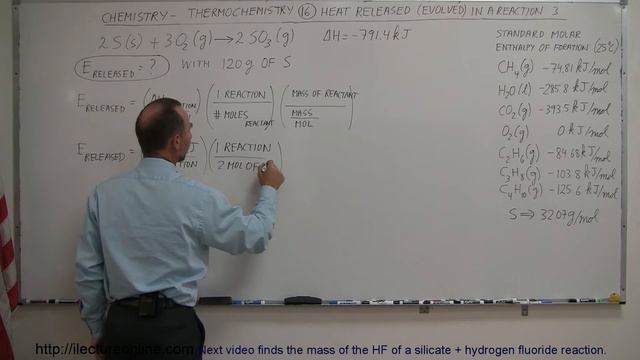 CHEMISTRY - THERMOCHEMISTRY (16) HEAT RELEASED (EVOLVED) IN A REACTION 3
2 S(s) + 3 O₂(g) → 2 SO₃(g) ΔH = -791.4 kJ
E RELEASED = ? WITH 120 g OF S
E RELEASED = (ΔH) (1 REACTION / # MOLES REACTANT) (MASS OF REACTANT / MASS / MOL)
E RELEASED = (1 REACTION / 2 MOL OF
STANDARD MOLAR
ENTHALPY OF FORATION (25°C)
CH₄(g) -74.81 kJ/mol
H₂O(l) -285.8 kJ/mol
CO₂(g) -393.5 kJ/mol
O₂(g) 0 kJ/mol
C₂H₆(g) -84.68 kJ/mol
C₃H₈(g) -103.8 kJ/mol
C₄H₁₀(g) -125.6 kJ/mol
S ⇒ 32.07 g/mol
http://ilectureonline.com Next video finds the mass of the HF of a silicate + hydrogen fluoride reaction.